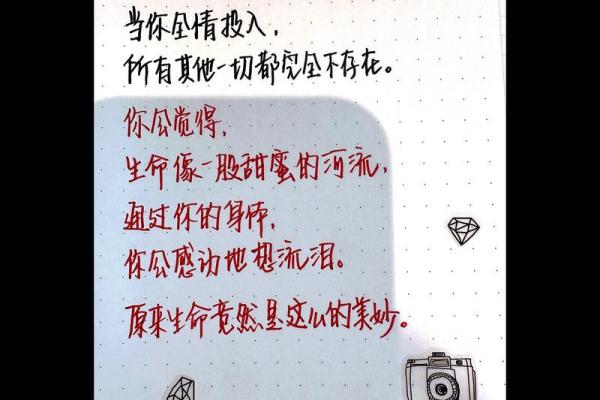 当你全情投入，
所有其他一切都完全不存在。
你会觉得，
生命像一股甜蜜的河流，
通过你的身体，
你会感动地想流泪。
原来生命竟然是这么的美妙。